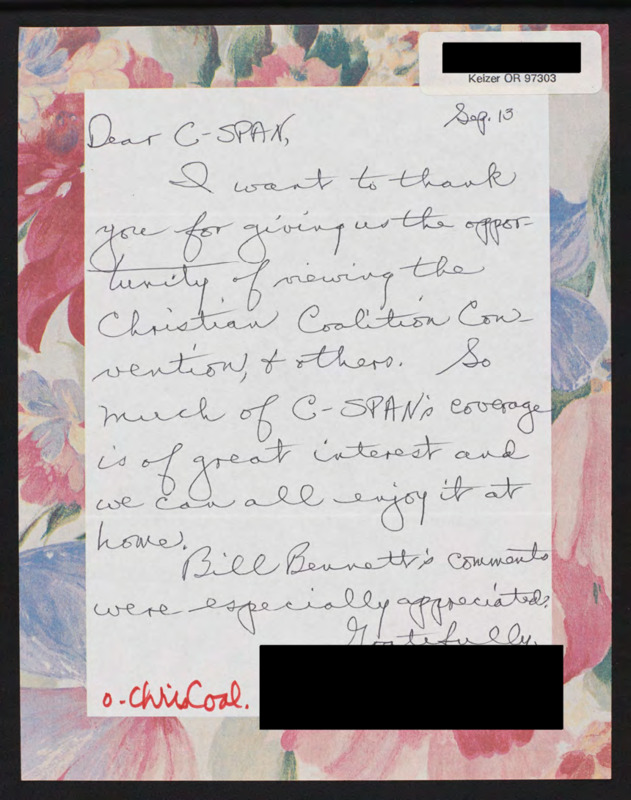 Keizer OR 97303
Sep. 13
Dear C-SPAN,
I want to thank
you for giving us the oppor-
tunity of viewing the
Christian Coalition Con-
vention, & others. So
much of C-SPAN's coverage
is of great interest and
we can all enjoy it at
home.
Bill Bennett's comments
were especially appreciated.
Gratefully,
o-ChrisCoal.